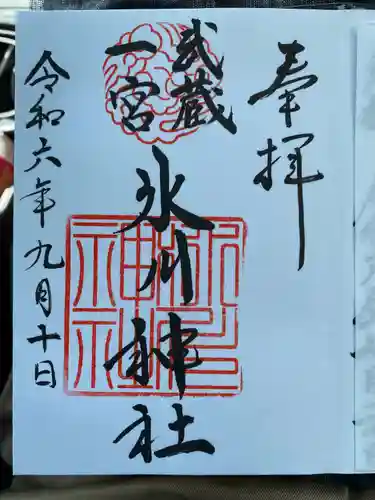 奉拝
武蔵
一宮
氷川神社
令和六年九月十日
氷川
神社